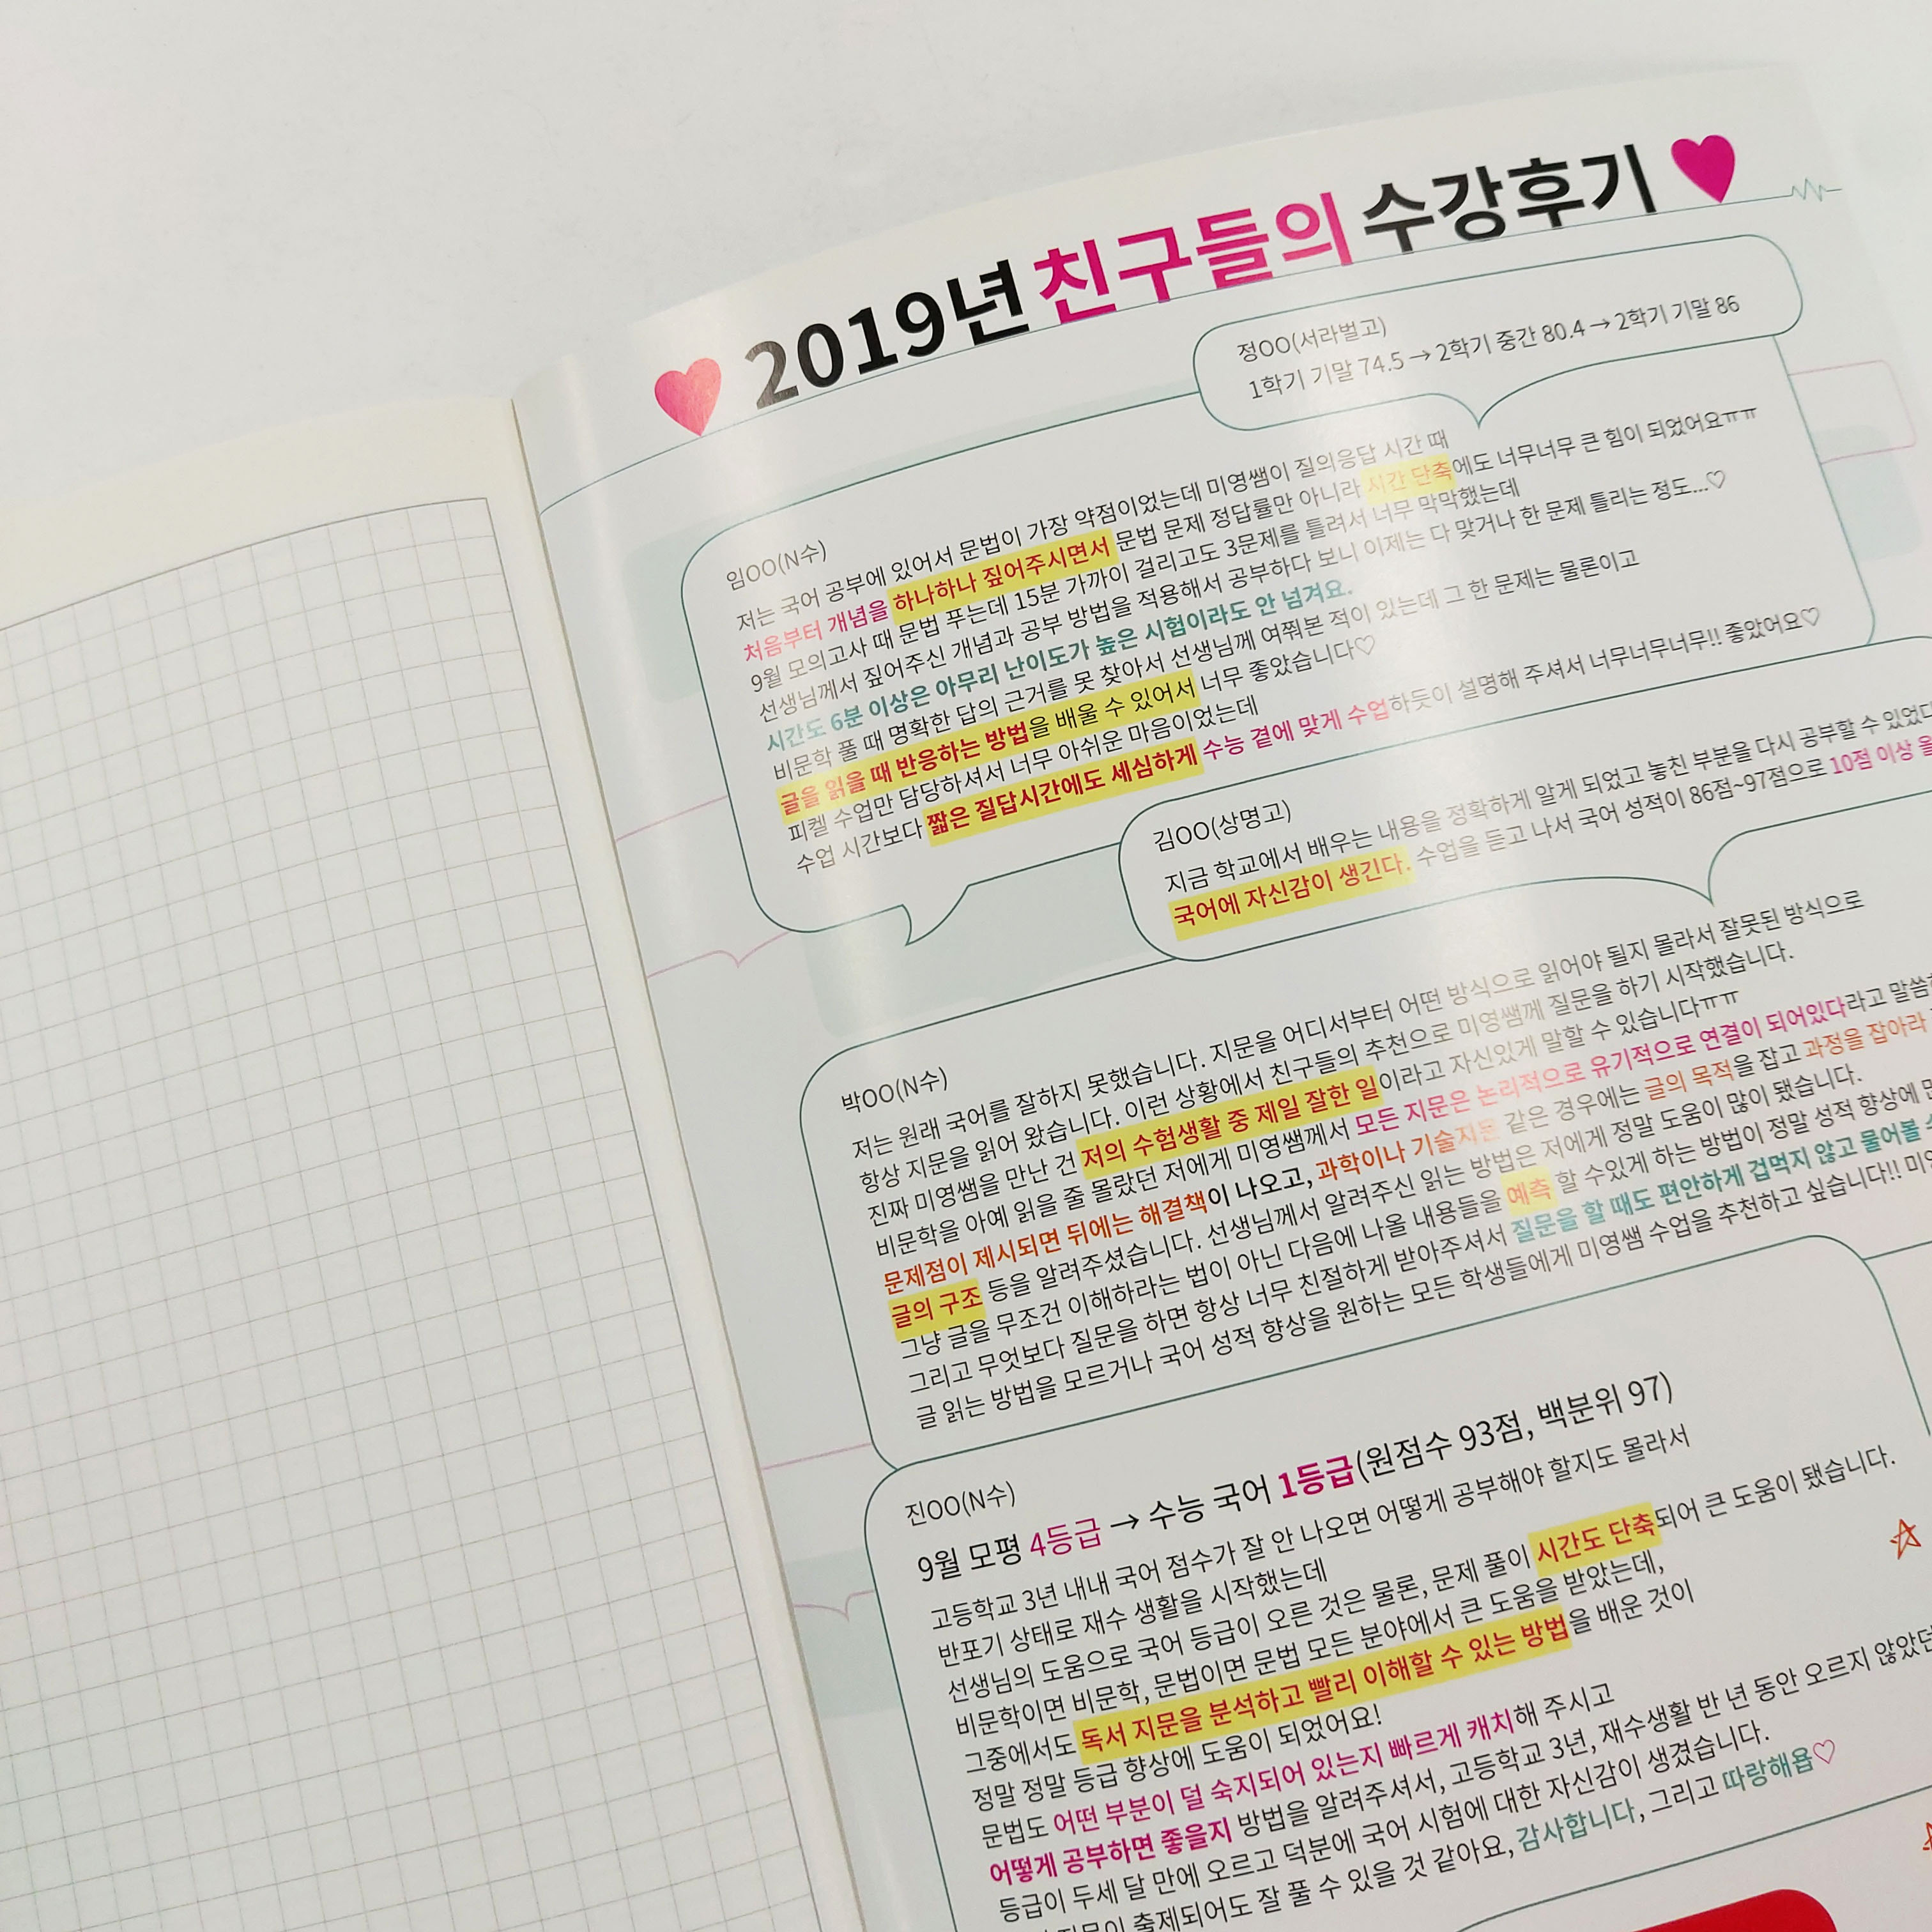 2019년 친구들의 수강후기
정OO(서라벌고)
1학기 기말 74.5 → 2학기 중간 80.4 → 2학기 기말 86
임OO(N수)
저는 국어 공부에 있어서 문법이 가장 약점이었는데 미영쌤이 질의응답 시간 때
처음부터 개념을 하나하나 짚어주시면서 문법 문제 정답률만 아니라 시간 단축에도 너무너무 큰 힘이 되었어요ㅠㅠ
9월 모의고사 때 문법 푸는데 15분 가까이 걸리고도 3문제를 틀려서 너무 막막했는데
선생님께서 짚어주신 개념과 공부 방법을 적용해서 공부하다 보니 이제는 다 맞거나 한 문제 틀리는 정도...♡
시간도 6분 이상은 아무리 난이도가 높은 시험이라도 안 넘겨요.
비문학 풀 때 명확한 답의 근거를 못 찾아서 선생님께 여쭤본 적이 있는데 그 한 문제는 물론이고
글을 읽을 때 반응하는 방법을 배울 수 있어서 너무 좋았습니다♡
피켈 수업만 담당하셔서 너무 아쉬운 마음이었는데
수업 시간보다 짧은 질답시간에도 세심하게 수능 곁에 맞게 수업하듯이 설명해 주셔서 너무너무너무!! 좋았어요♡
김OO(상명고)
지금 학교에서 배우는 내용을 정확하게 알게 되었고 놓친 부분을 다시 공부할 수 있었다
국어에 자신감이 생긴다. 수업을 듣고 나서 국어 성적이 86점~97점으로 10점 이상
박OO(N수)
저는 원래 국어를 잘하지 못했습니다. 지문을 어디서부터 어떤 방식으로 읽어야 될지 몰라서 잘못된 방식으로
항상 지문을 읽어 왔습니다. 이런 상황에서 친구들의 추천으로 미영쌤께 질문을 하기 시작했습니다.
진짜 미영쌤을 만난 건 저의 수험생활 중 제일 잘한 일이라고 자신있게 말할 수 있습니다ㅠㅠ
비문학을 아예 읽을 줄 몰랐던 저에게 미영쌤께서 모든 지문은 논리적으로 유기적으로 연결이 되어있다라고
문제점이 제시되면 뒤에는 해결책이 나오고, 과학이나 기술지문 같은 경우에는 글의 목적을 잡고 과정을 잡아라
글의 구조 등을 알려주셨습니다. 선생님께서 알려주신 읽는 방법은 저에게 정말 도움이 많이 됐습니다.
그냥 글을 무조건 이해하라는 법이 아닌 다음에 나올 내용들을 예측 할 수있게 하는 방법이 정말 성적 향상에
그리고 무엇보다 질문을 하면 항상 너무 친절하게 받아주셔서 질문을 할 때도 편안하게 겁먹지 않고 물어볼
글 읽는 방법을 모르거나 국어 성적 향상을 원하는 모든 학생들에게 미영쌤 수업을 추천하고 싶습니다!!
진OO(N수)
9월 모평 4등급 → 수능 국어 1등급(원점수 93점, 백분위 97)
고등학교 3년 내내 국어 점수가 잘 안 나오면 어떻게 공부해야 할지도 몰라서
반포기 상태로 재수 생활을 시작했는데
선생님의 도움으로 국어 등급이 오른 것은 물론, 문제 풀이 시간도 단축되어 큰 도움이 됐습니다.
비문학이면 비문학, 문법이면 문법 모든 분야에서 큰 도움을 받았는데,
그중에서도 독서 지문을 분석하고 빨리 이해할 수 있는 방법을 배운 것이
정말 정말 등급 향상에 도움이 되었어요!
문법도 어떤 부분이 덜 숙지되어 있는지 빠르게 캐치해 주시고
어떻게 공부하면 좋을지 방법을 알려주셔서, 고등학교 3년, 재수생활 반 년 동안 오르지 않았던
등급이 두세 달 만에 오르고 덕분에 국어 시험에 대한 자신감이 생겼습니다.
지문이 출제되어도 잘 풀 수 있을 것 같아요, 감사합니다, 그리고 따랑해욥♡